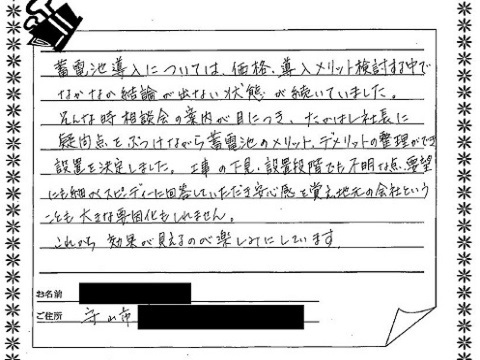 蓄電池導入については、価格、導入メリット検討する中で
なかなか結論が出ない状態が続いていました。
そんな時相談会の案内が目につき、たかはし社長に
疑問点をぶつけながら蓄電池のメリット、デメリットの整理ができ
設置を決定しました。工事の下見、設置段階でも不明な点、要望
にも細かくスピーディーに回答していただき安心感を覚え地元の会社という
ことも大きな要因かもしれません。
これから効果が見えるのが楽しみにしています。
お名前
ご住所 守山市